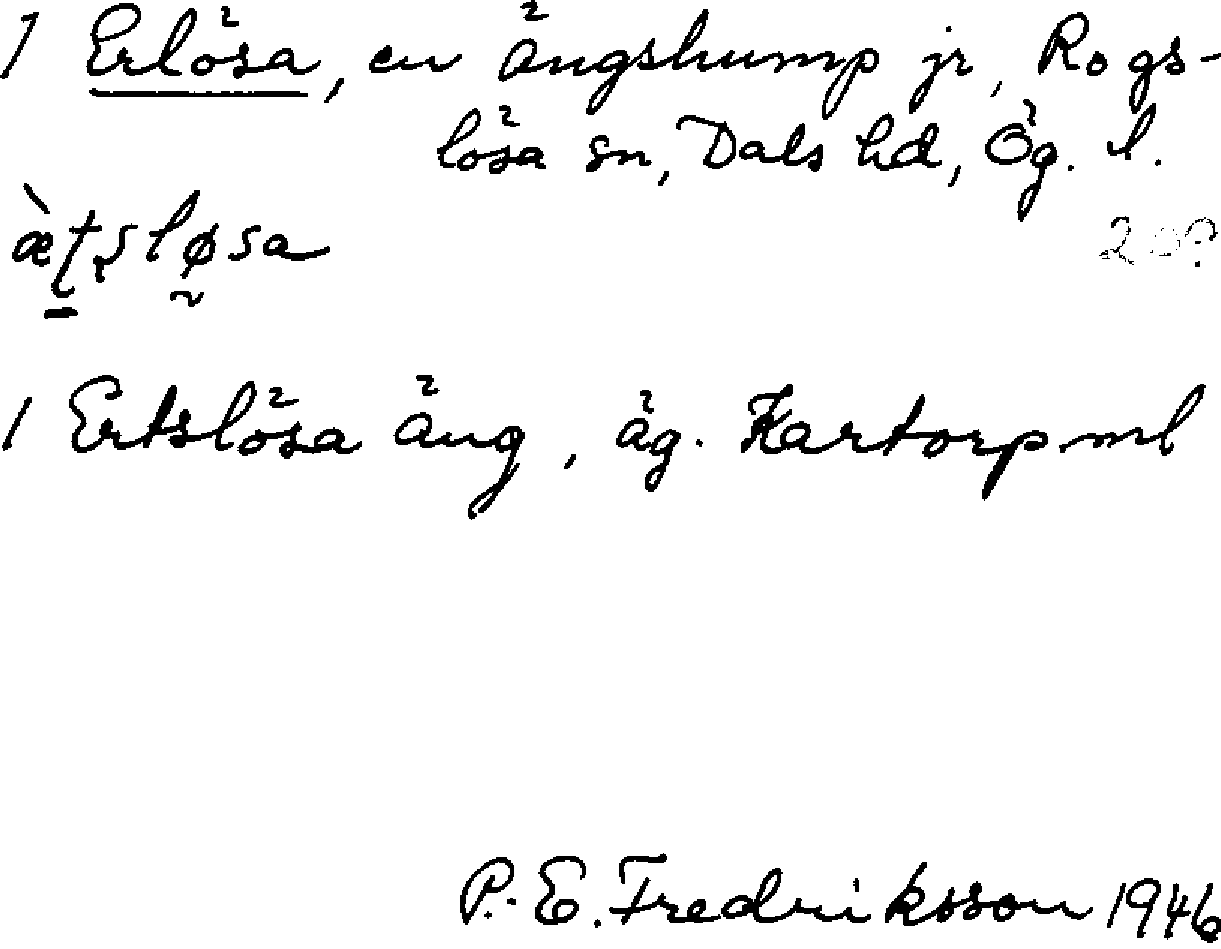 1 Erlösa, en ängshump jr, Rogs-
lösa sn, Dals hd, Ög. l.
æ̀ʈʂløsa
1 Ertslösa äng, äg. Kartorp ml
P. E. Fredriksson 1946